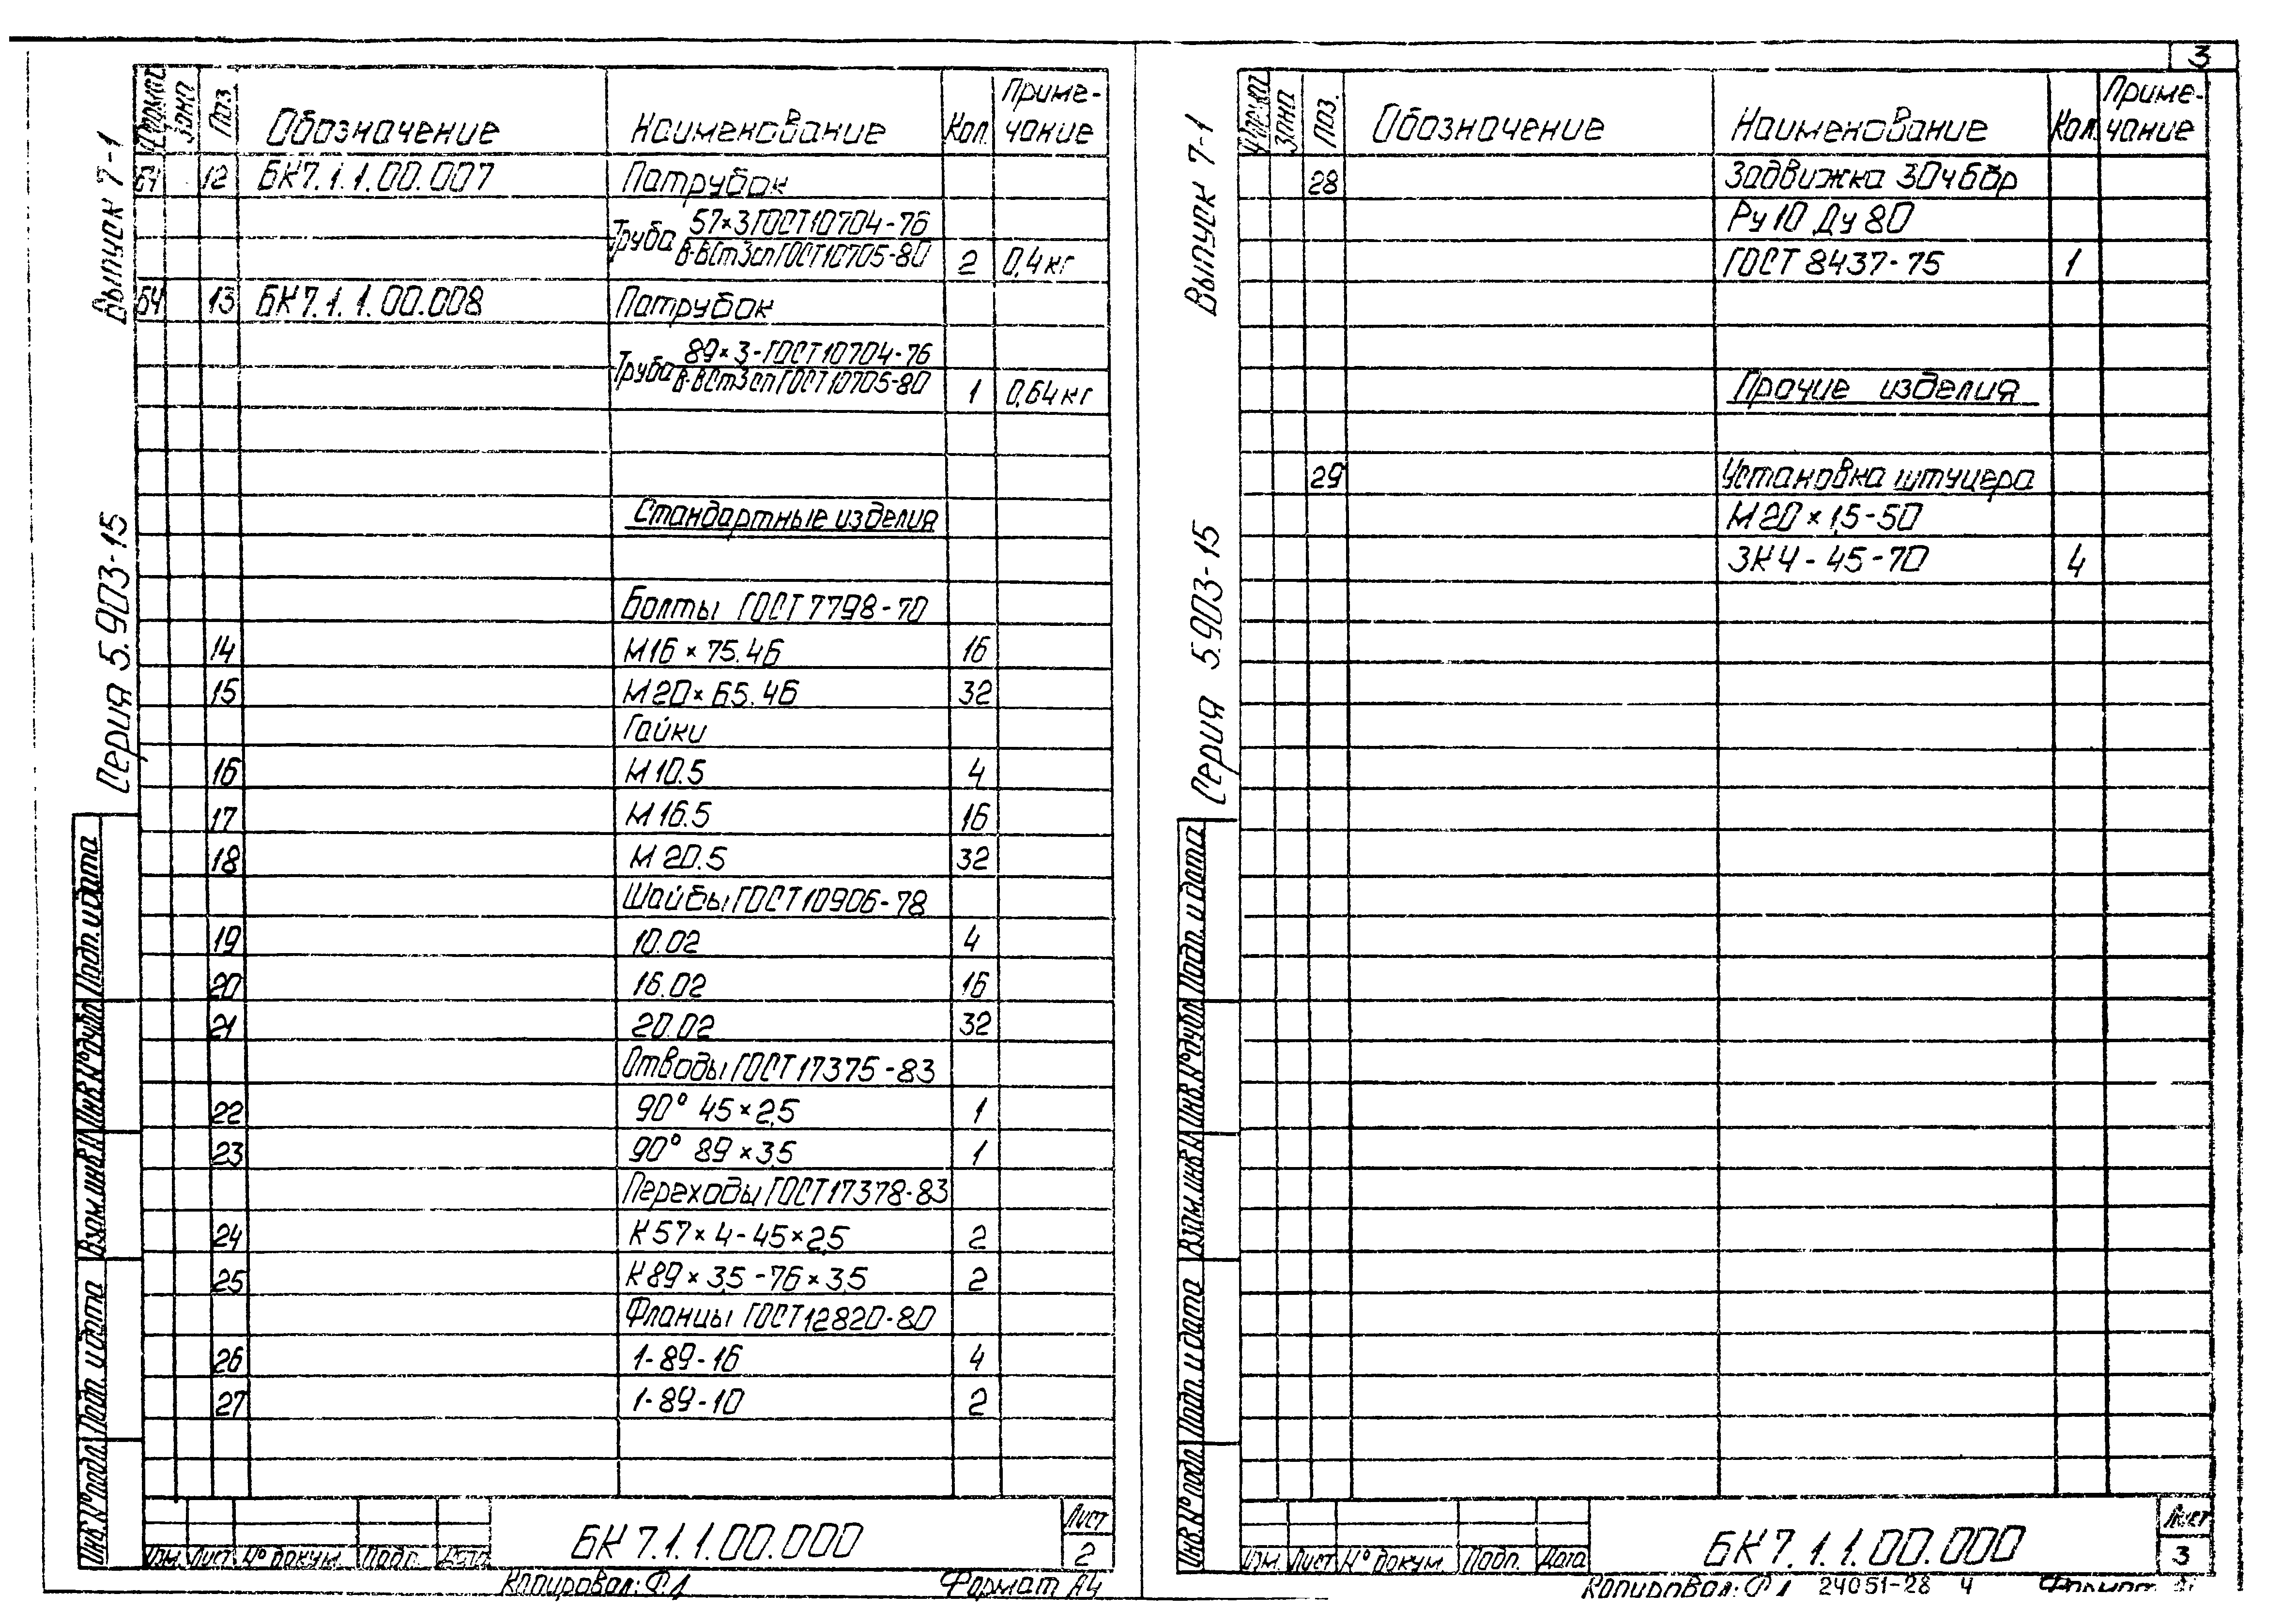 3
Выпуск 7-1
Серия 5.903-15
Формат Зона Поз. Обозначение Наименование Кол. Приме-
чание
БЧ 12 БК7.1.1.00.007 Патрубок
Труба 57×3 ГОСТ 10704-76
В-ВСт3сп ГОСТ 10705-80 2 0,4 кг
БЧ 13 БК7.1.1.00.008 Патрубок
Труба 89×3-ГОСТ 10704-76
В-ВСт3сп ГОСТ 10705-80 1 0,64 кг
Стандартные изделия
Болты ГОСТ 7798-70
14 М16×75.46 16
15 М20×65.46 32
Гайки
16 М10.5 4
17 М16.5 16
18 М20.5 32
Шайбы ГОСТ 10906-78
19 10.02 4
20 16.02 16
21 20.02 32
Отводы ГОСТ 17375-83
22 90° 45×2,5 1
23 90° 89×3,5 1
Переходы ГОСТ 17378-83
24 К57×4-45×2,5 2
25 К89×3,5-76×3,5 2
Фланцы ГОСТ 12820-80
26 1-89-16 4
27 1-89-10 2
Инв.№подл. Подп. и дата Взам.инв.№ Инв.№дубл. Подп. и дата
Изм. Лист № докум. Подп. Дата
БК 7.1.1.00.000
Лист
2
Копировал: ФЛ Формат А4
Выпуск 7-1
Серия 5.903-15
Формат Зона Поз. Обозначение Наименование Кол. Приме-
чание
28 Задвижка 30ч6бр
Ру10 Ду80
ГОСТ 8437-75 1
Прочие изделия
29 Установка штуцера
М20×1,5-50
ЗК4-45-70 4
Инв.№подл. Подп. и дата Взам.инв.№ Инв.№дубл. Подп. и дата
Изм. Лист № докум. Подп. Дата
БК 7.1.1.00.000
Лист
3
Копировал: 24051-28 4 Формат